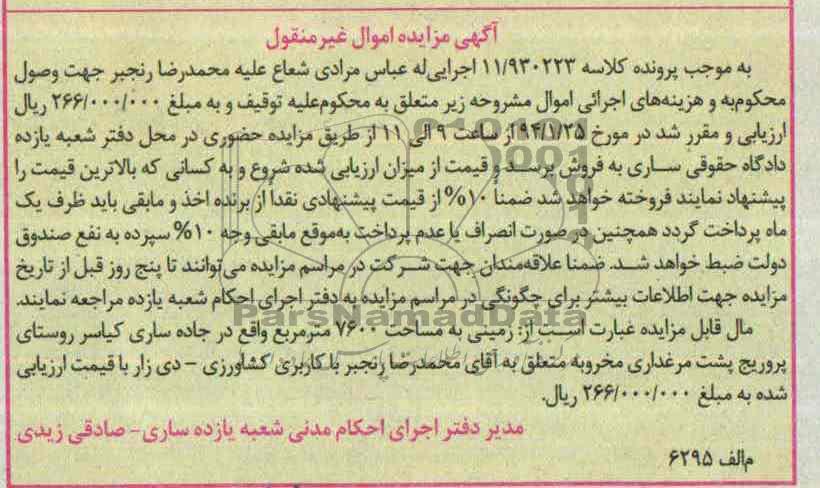 آگهی مزایده اموال غیرمنقول
به موجب پرونده کلاسه ۱۱/۹۳۰۲۲۳ اجرایی‌له عباس مرادی شعاع علیه محمدرضا رنجبر جهت وصول
محکوم‌به و هزینه‌های اجرائی اموال مشروحه زیر متعلق به محکوم‌علیه توقیف و به مبلغ ۲۶۶/۰۰۰/۰۰۰ ریال
ارزیابی و مقرر شد در مورخ ۹۴/۱/۲۵ از ساعت ۹ الی ۱۱ از طریق مزایده حضوری در محل دفتر شعبه یازده
دادگاه حقوقی ساری به فروش برسد و قیمت از میزان ارزیابی شده شروع و به کسانی که بالاترین قیمت را
پیشنهاد نمایند فروخته خواهد شد ضمناً ۱۰% از قیمت پیشنهادی نقداً از برنده اخذ و مابقی باید ظرف یک
ماه پرداخت گردد همچنین در صورت انصراف یا عدم پرداخت به‌موقع مابقی وجه ۱۰% سپرده به نفع صندوق
دولت ضبط خواهد شد. ضمنا علاقه‌مندان جهت شرکت در مراسم مزایده می‌توانند تا پنج روز قبل از تاریخ
مزایده جهت اطلاعات بیشتر برای چگونگی در مراسم مزایده به دفتر اجرای احکام شعبه یازده مراجعه نمایند.
ParsNamadData
مال قابل مزایده عبارت است از: زمینی به مساحت ۷۶۰۰ مترمربع واقع در جاده ساری کیاسر روستای
پروریج پشت مرغداری مخروبه متعلق به آقای محمدرضا رنجبر با کاربری کشاورزی – دی زار با قیمت ارزیابی
شده به مبلغ ۲۶۶/۰۰۰/۰۰۰ ریال.
مدیر دفتر اجرای احکام مدنی شعبه یازده ساری- صادقی زیدی
م‌الف ۶۲۹۵